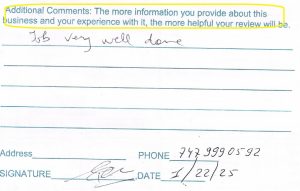 Additional Comments: The more information you provide about this
business and your experience with it, the more helpful your review will be.
Job very well done
Address
PHONE 747 999 0592
SIGNATURE DATE 1/22/25